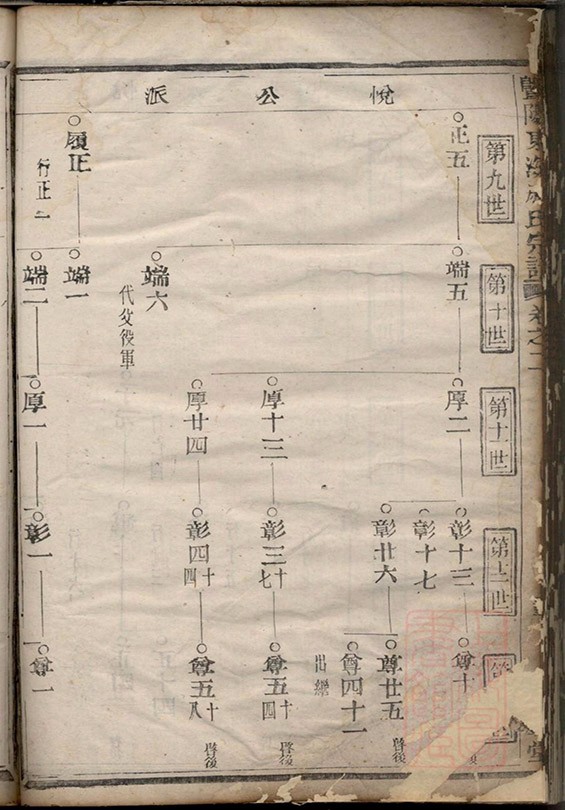 悅公派
暨陽
氏宗譜 卷之二
第九世
正五
履正 行正二
第十世
端五
端六 代父役軍
端一
端二
第十一世
厚二
厚十三
厚廿四
厚一
第十二世
彰十三
彰十七
彰廿六
彰三十七
彰四十四
彰一
第
尊十
尊廿五 啓後
尊四十一 出繼
尊五十四 啓後
尊五十八 啓後
尊一
堂